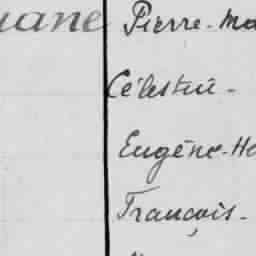 uane Pierre-Ma
Célestin-
Eugène-He
François-